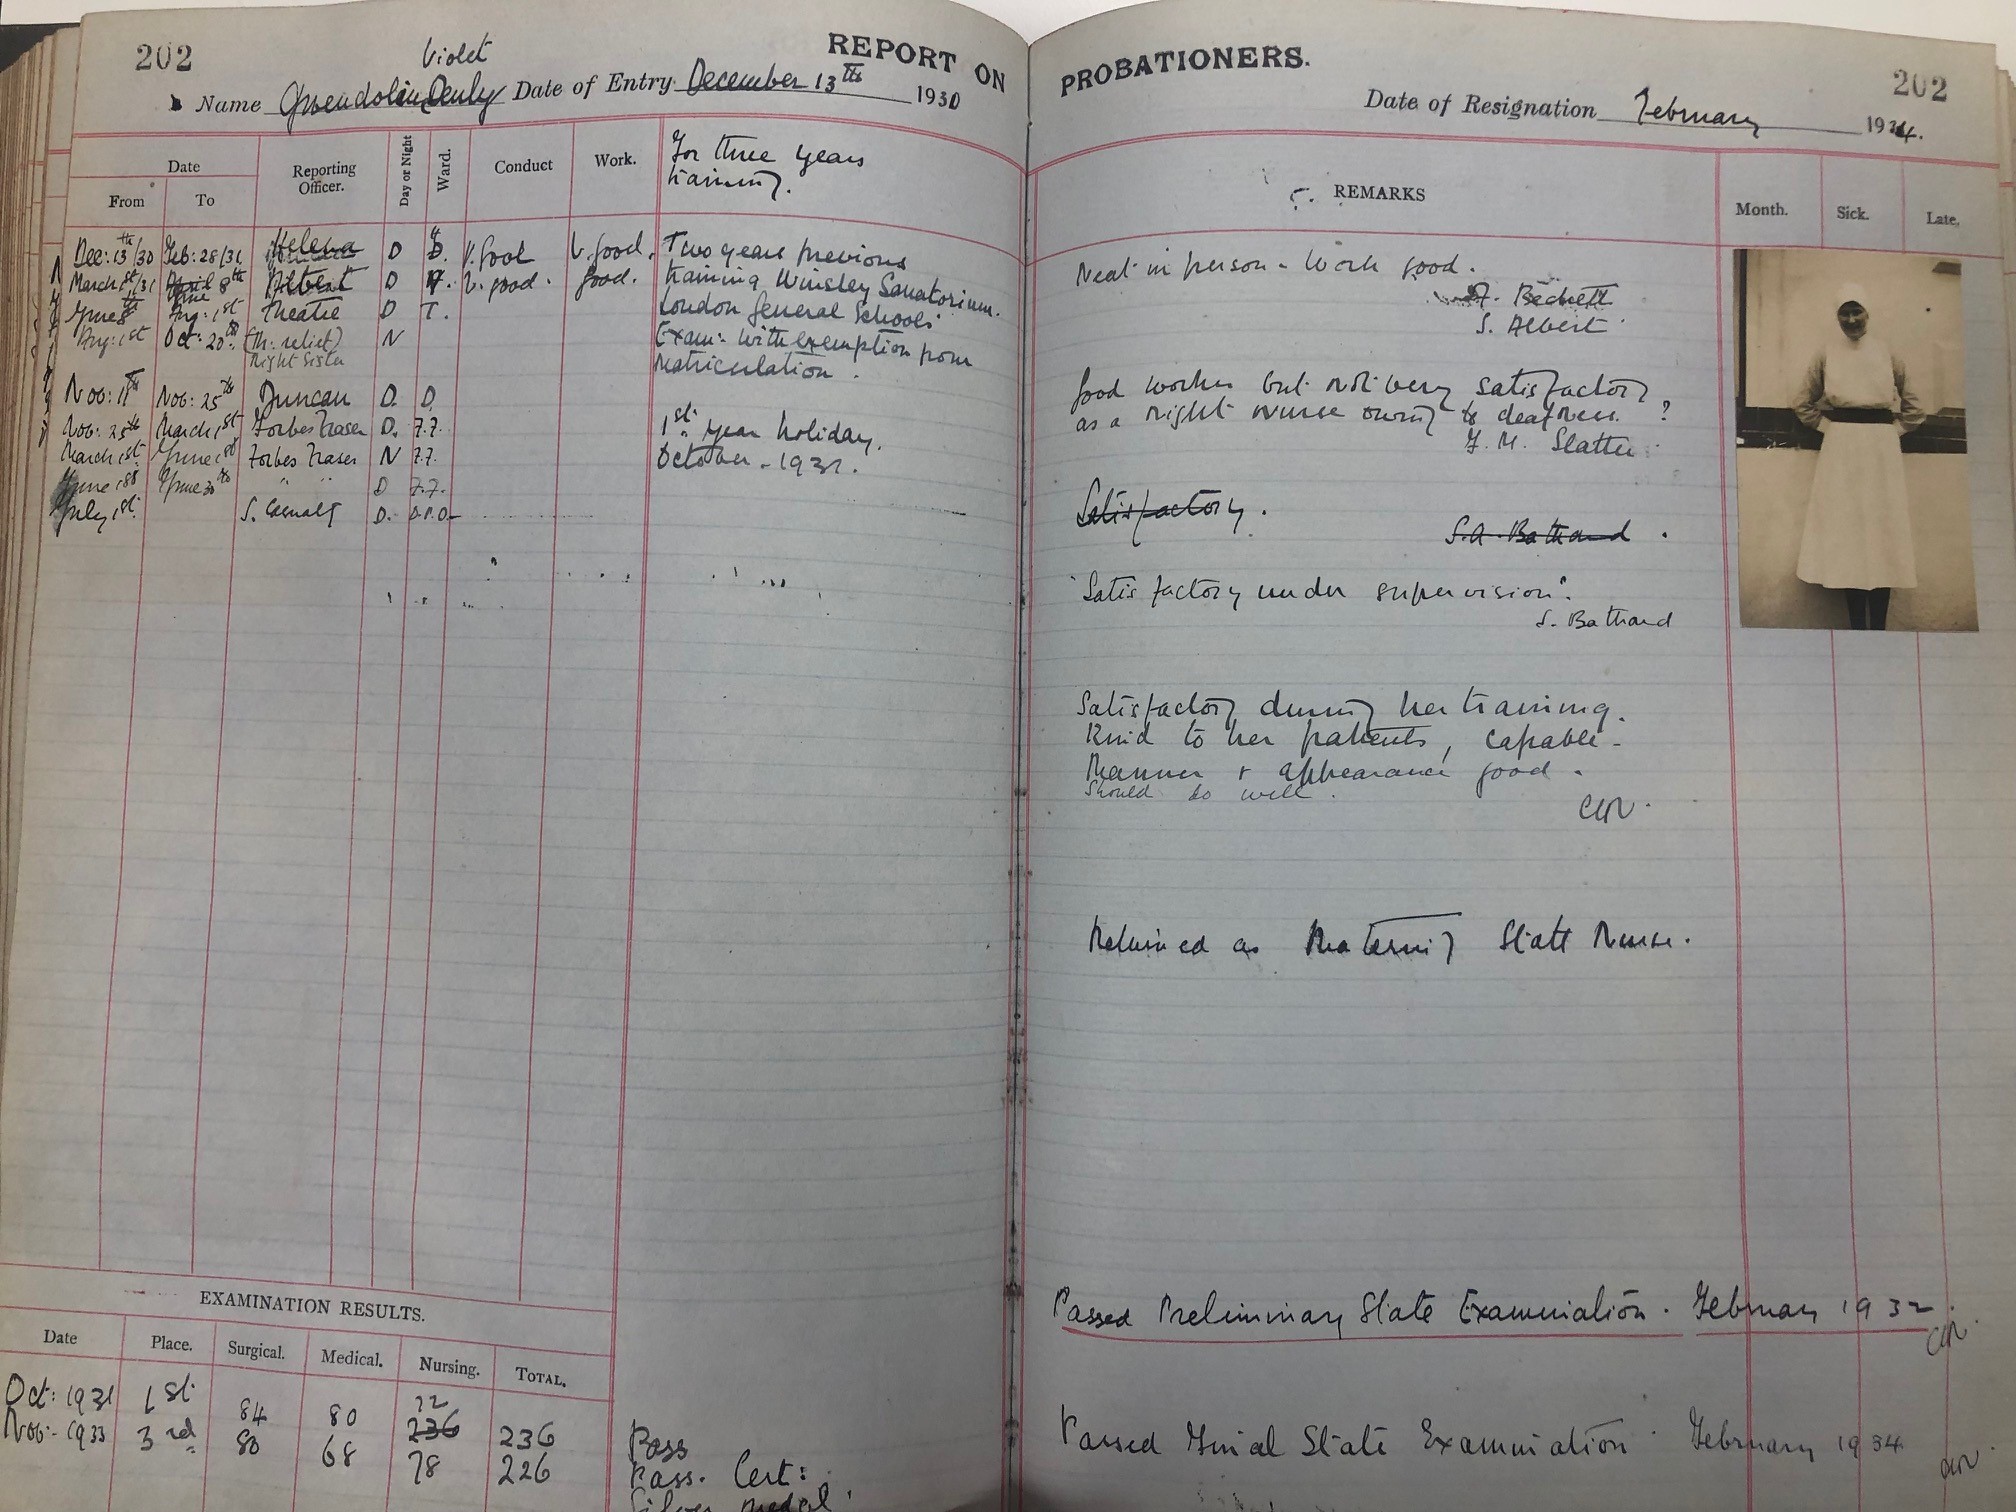 202
REPORT ON
Violet
Name Gwendoline Denly Date of Entry December 13th 1930
Date
From To
Reporting Officer.
Day or Night
Ward.
Conduct
Work.
For three years
training.
Dec: 13th/30 Feb: 28/31 Helena D D. V. good V. good. Two years previous
March 1st/31 June 8th Albert D V. good. good. training Winsley Sanatorium.
June 8th Aug: 1st Theatre D T. London General Schools
Aug: 1st Oct: 20th (Th: relief) N Exam: with exemption from
Night Sister matriculation.
Nov: 11th Nov: 25th Duncan D. D.
Nov: 25th March 1st Forbes Fraser D. F.F. 1st year holiday.
March 1st June 1st Forbes Fraser N F.F. October - 1931.
June 1st June 30th " " D F.F.
July 1st S. D. O.P.D.
EXAMINATION RESULTS.
Date Place. Surgical. Medical. Nursing. TOTAL.
Oct: 1931 1st 84 80 72 236 236 Pass
Nov: 1933 3rd 80 68 78 226 Pass. Cert:
Silver medal.
PROBATIONERS.
202
Date of Resignation February 1934.
REMARKS
Month. Sick. Late.
Neat in person - Work good.
Beckett
S. Albert
Good worker but not very satisfactory
as a night nurse owing to deafness. ?
F. M. Slatter
Satisfactory.
S.A. Bathard.
"Satisfactory under supervision".
S. Bathard
Satisfactory during her training.
Kind to her patients, capable.
Manner & appearance good.
Should do well.
Returned as Maternity Staff Nurse.
Passed Preliminary State Examination. February 1932.
Passed Final State Examination. February 1934